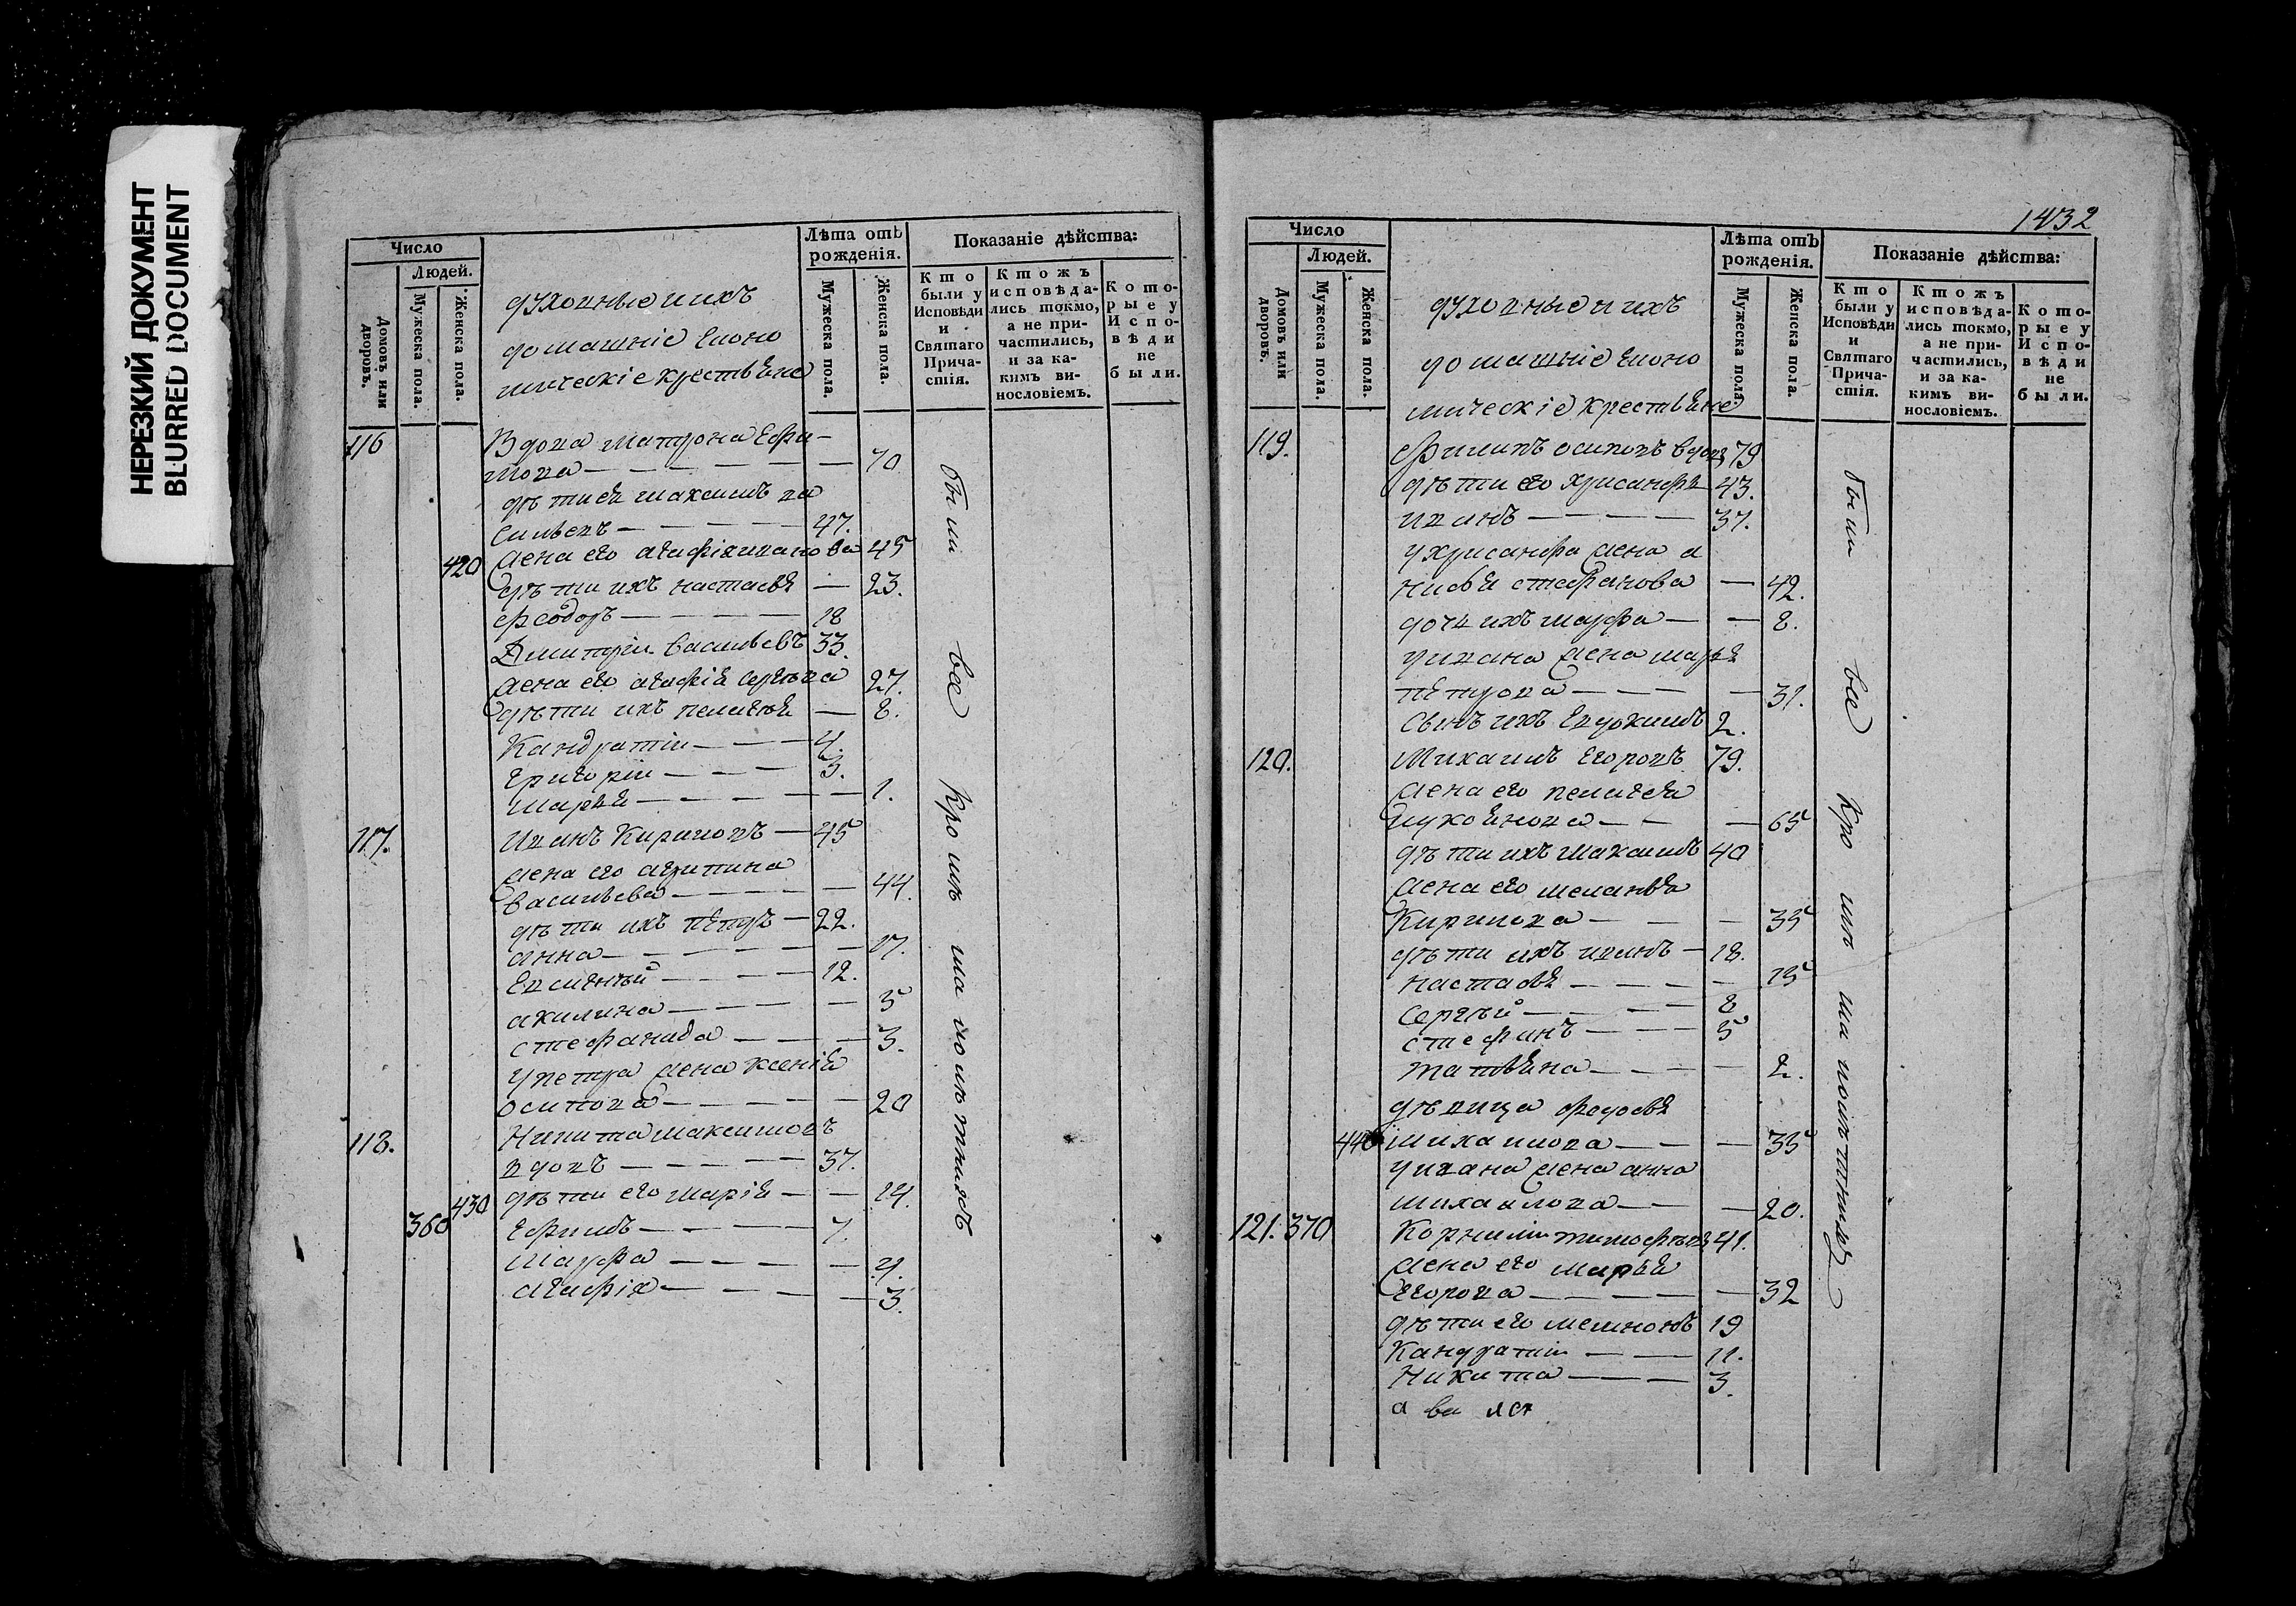 НЕРЕЗКИЙ ДОКУМЕНТ
BLURRED DOCUMENT
Число
Людей.
Домовъ или дворовъ.
Мужеска пола.
Женска пола.
духовные и ихъ
домашніе Еконо
мическіе крестьяне
Лѣта отъ рожденія.
Мужеска пола.
Женска пола.
Показаніе дѣйства:
Кто были у Исповѣди и Святаго Причастія.
Ктожъ исповѣдались токмо, а не причастились, и за какимъ винословіемъ.
Которые у Исповѣди не были.
116 Вдова матрона Ефи-
мова — — — — — — 70
дѣти ея максимъ ва
сильевъ — — — — 47.
420 жена его агафія иванова 45
дѣти ихъ настасья — 23.
феодоръ — — — — 18
Дмитріи васильевъ 33.
жена его агафія сергѣева 27.
дѣти ихъ пелагея — 8.
Кандратіи — — — 4.
Григоріи — — — 3.
марья — — — — — 1.
117. Иванъ Кириловъ — 45
жена его агрипина
васильева — — — — — 44.
дѣти ихъ петръ — 22.
анна — — — — — 17.
Евгеній — — — — 12.
акилина — — — — 5
стефанида — — — — 3.
у петра жена ксенія
осипова — — — — — 20
118. Никита максимовъ
вдовъ — — — — 37.
430 дѣти его марія — — 14.
360 Ефимъ — — — — 7.
марфа — — — — 4.
агафія — — — — — 3.
были все кромѣ малолѣтнихъ
1432
Число
Людей.
Домовъ или дворовъ.
Мужеска пола.
Женска пола.
духовные и ихъ
домашніе Еконо
мическіе крестьяне
Лѣта отъ рожденія.
Мужеска пола.
Женска пола.
Показаніе дѣйства:
Кто были у Исповѣди и Святаго Причастія.
Ктожъ исповѣдались токмо, а не причастились, и за какимъ винословіемъ.
Которые у Исповѣди не были.
119. филипъ осиповъ вдовъ 79
дѣти его хрисанфъ 43.
иванъ — — — — 37.
у хрисанфа жена а
нисья стефанова — 42.
дочь ихъ марфа — — 8.
у ивана жена марья
петрова — — — — 31.
сынъ ихъ Евдокимъ 2.
120. Михаилъ Егоровъ 79.
жена его пелагея
лукоянова — — — 65
дѣти ихъ максимъ 40
жена его меланья
Кирилова — — — 35
дѣти ихъ иванъ — 18.
настасья — — — — — 15
сергѣй — — — — 8
стефанъ — — — 5
татьяна — — — — 2.
дѣвица федосья
440 михаилова — — — 35
у ивана жена анна
михаилова — — — 20.
121. 370 Корниліи тимофѣевъ 41.
жена его марья
Егорова — — — — — 32
дѣти его мемнонъ 19
Кандратіи — — 11.
Никита — — — 3.
были все кромѣ малолѣтнихъ